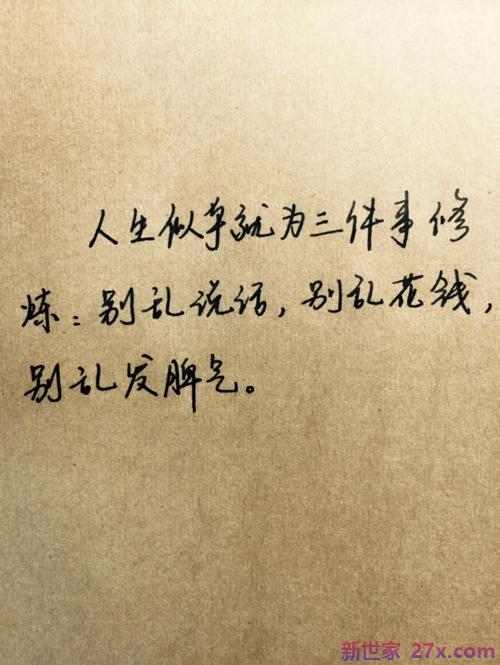 人生似乎就为三件事修
炼：别乱说话，别乱花钱，
别乱发脾气。
新世家 27x.com